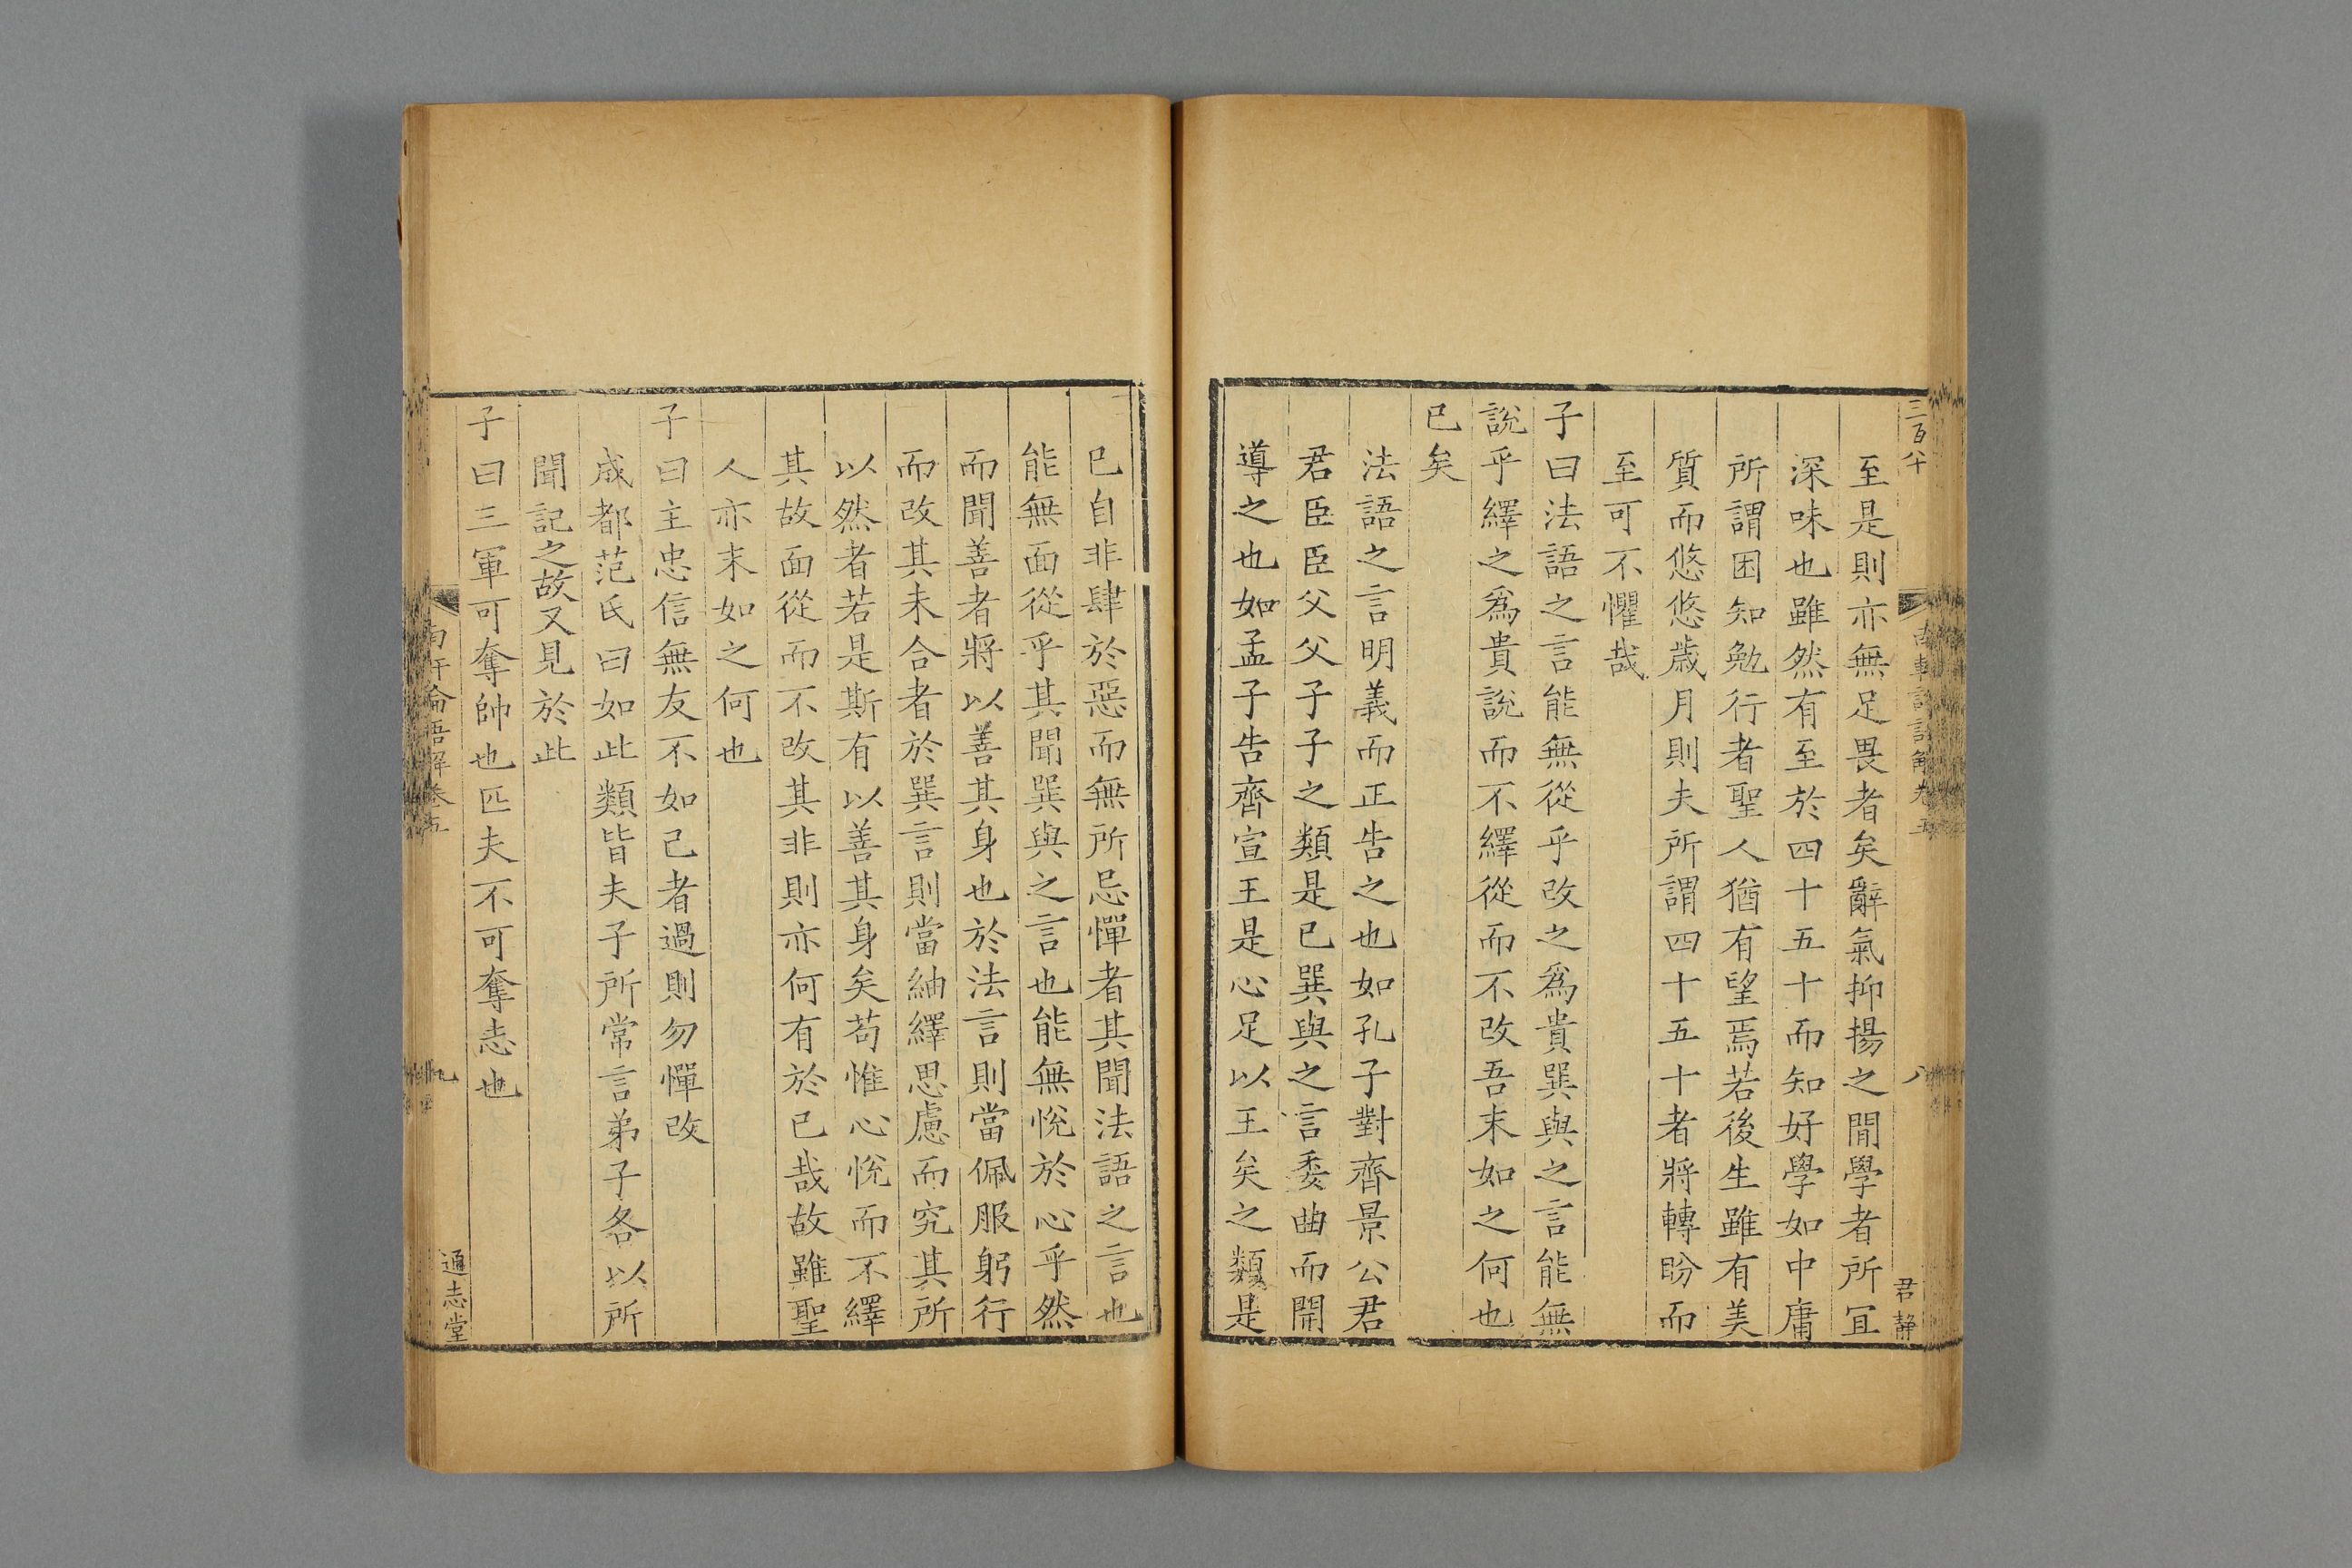 三百八十
南軒論語解卷五
八
君靜
至是則亦無足畏者矣辭氣抑揚之閒學者所宜
深味也雖然有至於四十五十而知好學如中庸
所謂困知勉行者聖人猶有望焉若後生雖有美
質而悠悠歲月則夫所謂四十五十者將轉盼而
至可不懼哉
子曰法語之言能無從乎改之爲貴巽與之言能無
說乎繹之爲貴說而不繹從而不改吾末如之何也
已矣
法語之言明義而正告之也如孔子對齊景公君
君臣臣父父子子之類是已巽與之言委曲而開
導之也如孟子告齊宣王是心足以王矣之類是
已自非肆於惡而無所忌憚者其聞法語之言也
能無面從乎其聞巽與之言也能無悅於心乎然
而聞善者將以善其身也於法言則當佩服躬行
而改其未合者於巽言則當紬繹思慮而究其所
以然者若是斯有以善其身矣苟惟心悅而不繹
其故面從而不改其非則亦何有於已哉故雖聖
人亦末如之何也
子曰主忠信無友不如己者過則勿憚改
成都范氏曰如此類皆夫子所常言弟子各以所
聞記之故又見於此
子曰三軍可奪帥也匹夫不可奪志也
南軒論語解卷五
九
通志堂